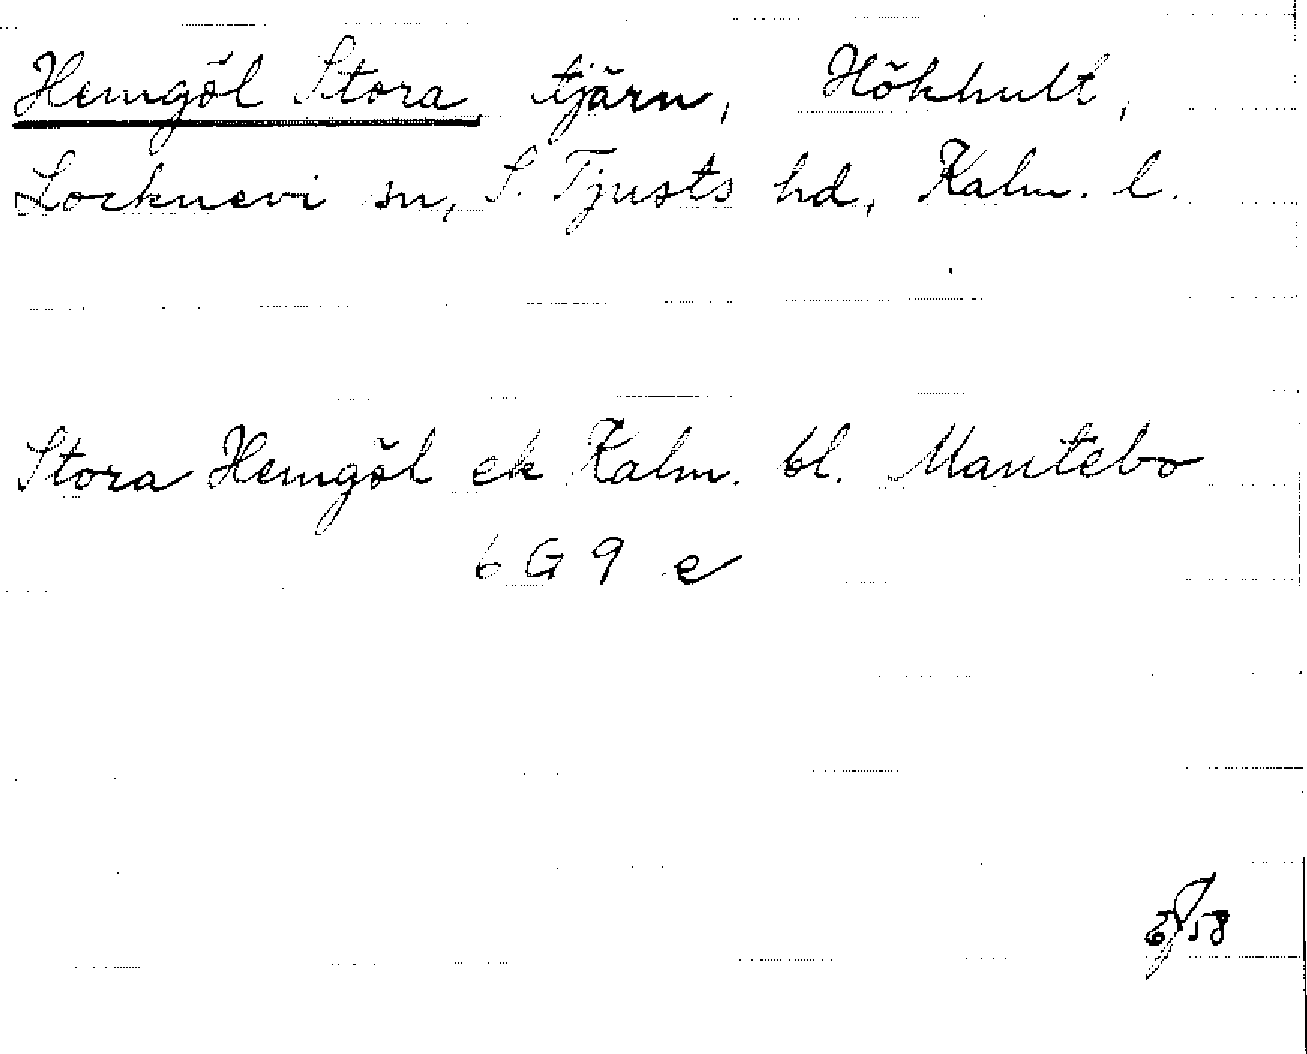 Hemgöl Stora tjärn, Hökhult,
Locknevi sn, S. Tjusts hd, Kalm. l.
Stora Hemgöl ek Kalm. bl. Mantebo
6 G 9 e
58